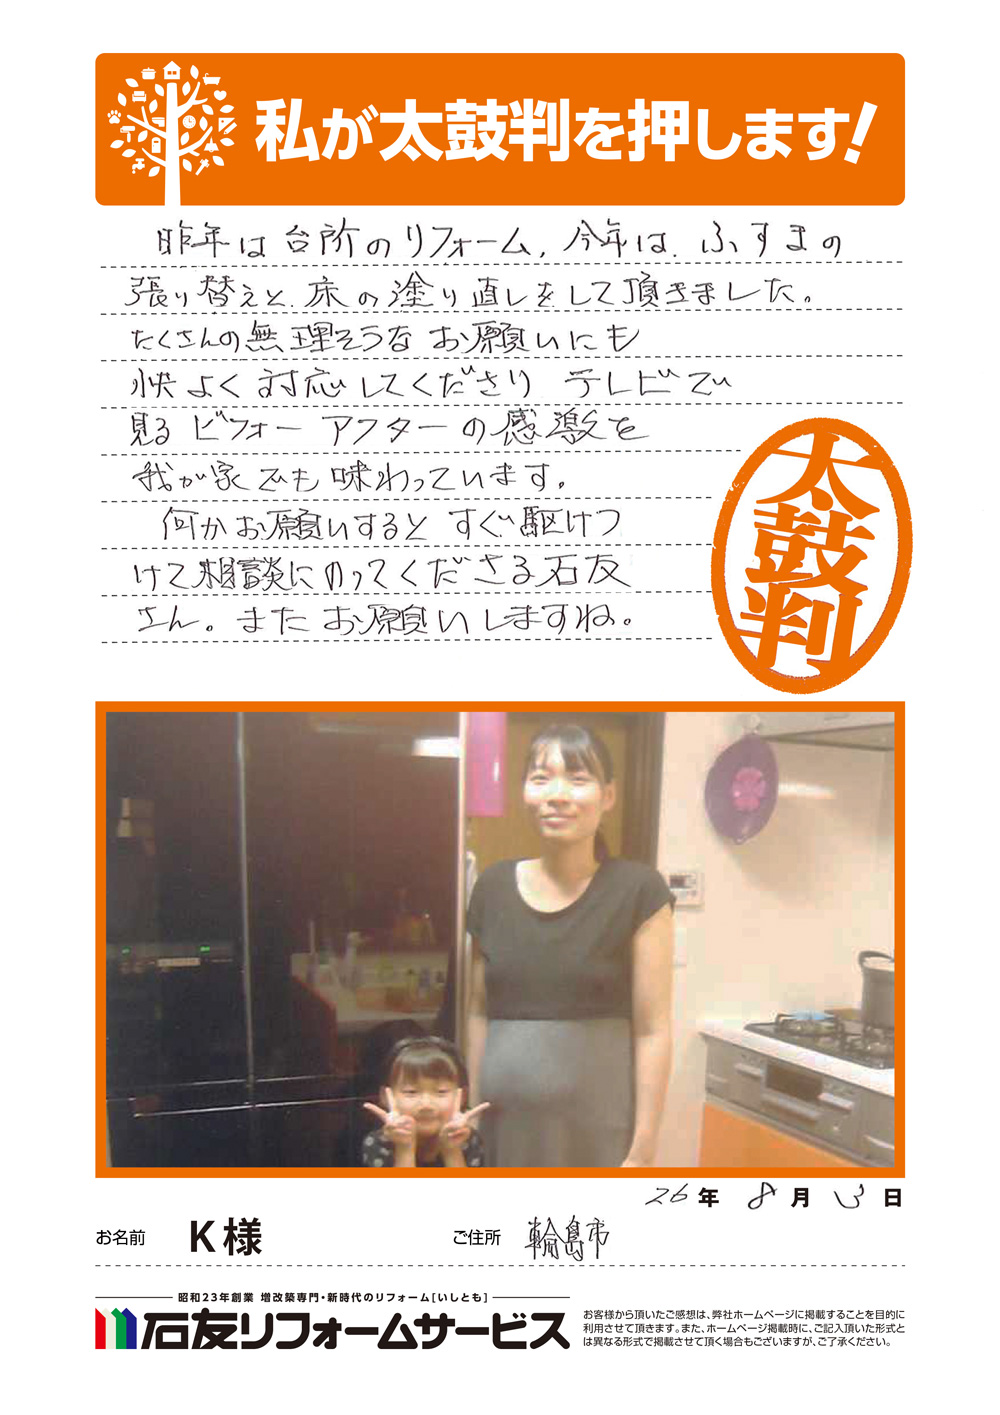 私が太鼓判を押します!
昨年は台所のリフォーム、今年は、ふすまの
張り替えと、床の塗り直しをして頂きました。
たくさんの無理そうなお願いにも
快よく対応してくださり テレビで
見るビフォーアフターの感激を
我が家でも味わっています。
何かお願いするとすぐ駆けつ
けて相談にのってくださる石友
さん。またお願いしますね。
太鼓判
26年 8月 13日
お名前 K様 ご住所 輪島市
昭和23年創業 増改築専門・新時代のリフォーム[いしとも]
石友リフォームサービス
お客様から頂いたご感想は、弊社ホームページに掲載することを目的に
利用させて頂きます。また、ホームページ掲載時に、ご記入頂いた形式と
は異なる形式で掲載させて頂く場合もございますが、ご了承ください。